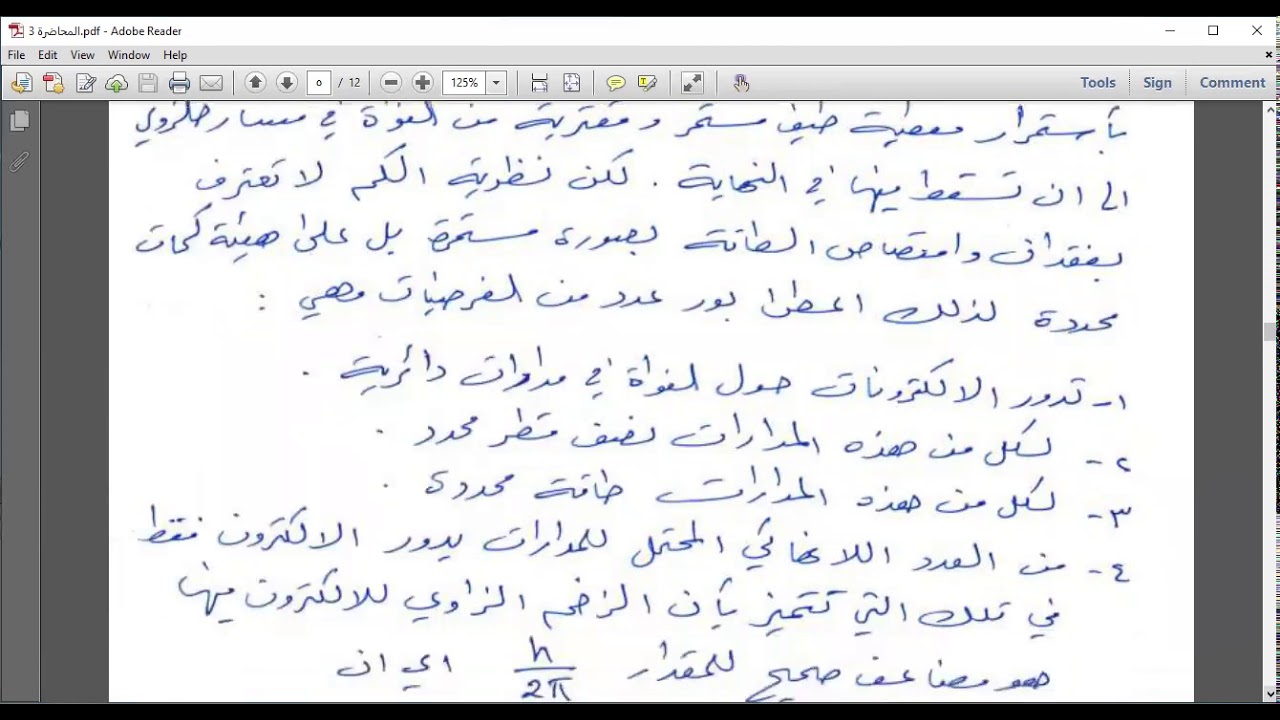 المحاضرة 3.pdf - Adobe Reader
File Edit View Window Help
٥ / 12 125% Tools Sign Comment
بأستمرار معطية طيف مستمر ومقتربة من النواة في مسار حلزوني
الى ان تسقط فيها في النهاية . لكن نظرية الكم لا تعترف
بفقدان وامتصاص الطاقة بصورة مستمرة بل على هيئة كمات
محددة لذلك اعطى بور عدد من الفرضيات وهي :
١- تدور الالكترونات حول النواة في مدارات دائرية .
٢- لكل من هذه المدارات نصف قطر محدد .
٣- لكل من هذه المدارات طاقة محددة .
٤- من العدد اللانهائي المحتمل للمدارات يدور الالكترون فقط
في تلك التي تتميز بأن الزخم الزاوي للالكترون فيها
هو مضاعف صحيح للمقدار h/2π اي ان